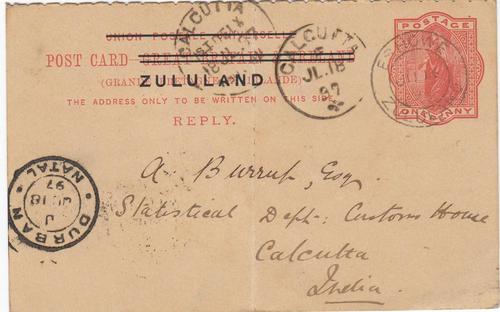 UNION POSTALE UNIVERSELLE
POST CARD GREAT BRITAIN & IRELAND
(GRANDE BRETAGNE ET IRLANDE)
ZULULAND
THE ADDRESS ONLY TO BE WRITTEN ON THIS SIDE.
REPLY.
POSTAGE
ONE PENNY
CALCUTTA
CALCUTTA
JL 18
97
ESHOWE
DURBAN
J
JU 18
97
NATAL
A. Burrup, Esq.
Statistical Dept: Customs House
Calcutta
India.